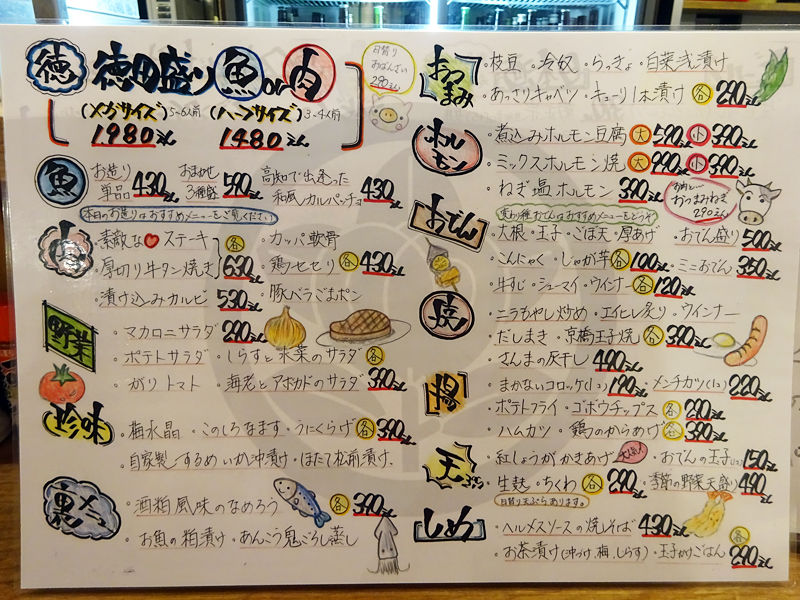 徳 徳田盛り 魚 or 肉
(メガサイズ) 5~6人前 (ハーフサイズ) 3~4人前
1980えん 1480えん
日替り
おばんざい
290えん
魚
お造り
単品 430えん
おまかせ
3種盛 590えん
高知で出逢った
和風カルパッチョ 430えん
本日のお造りはおすすめメニューをご覧ください
肉
・素敵な♥ステーキ
・厚切り牛タン焼き 各 630えん
・漬け込みカルビ 530えん
・カッパ軟骨
・鶏セセリ 各 430えん
・豚バラごまポン
野菜
・マカロニサラダ 290えん
・ポテトサラダ ・しらすと水菜のサラダ 各
・ガリトマト ・海老とアボカドのサラダ 390えん
珍味
・梅水晶 ・このしろなます ・うにくらげ 各 390えん
・自家製するめいか沖漬け ・ほたて松前漬け
裏メニュー
・酒粕風味のなめろう 各 390えん
・お魚の粕漬け ・あんこう鬼ごろし蒸し
おつまみ
・枝豆 ・冷奴 ・らっきょ ・白菜浅漬け
・あっさりキャベツ ・キューリ1本漬け 各 290えん
ホルモン
・煮込みホルモン豆腐 大 590えん 小 390えん
・ミックスホルモン焼 大 990えん 小 390えん
・ねぎ塩ホルモン 390えん
お肉と…
おつまみねぎ
290えん
おでん
変わり種おでんはおすすめメニューをどうぞ
・大根 ・玉子 ・ごぼ天 ・厚あげ ・おでん盛り 500えん
・こんにゃく ・じゃが芋 各 100えん ・ミニおでん 350えん
・牛すじ ・シューマイ ・ウインナー 各 120えん
焼
・ニラもやし炒め ・エイヒレ炙り ・ウインナー
・だしまき ・京橋玉子焼 各 390えん
・さんまの灰干し 490えん
揚
・まかないコロッケ(1コ) 190えん ・メンチカツ(1コ) 220えん
・ポテトフライ ・ゴボウチップス 各 290えん
・ハムカツ ・鶏のからあげ 各 390えん
天ぷら
・紅しょうがかきあげ ・おでんの玉子(1コ) 150えん
・生麩 ・ちくわ 各 290えん ・季節の野菜天盛り 490えん
日替り天ぷらあります。
しめ
・ヘルメスソースの焼そば 430えん
・お茶漬け(沖づけ、梅、しらす) ・玉子かけごはん 各 290えん